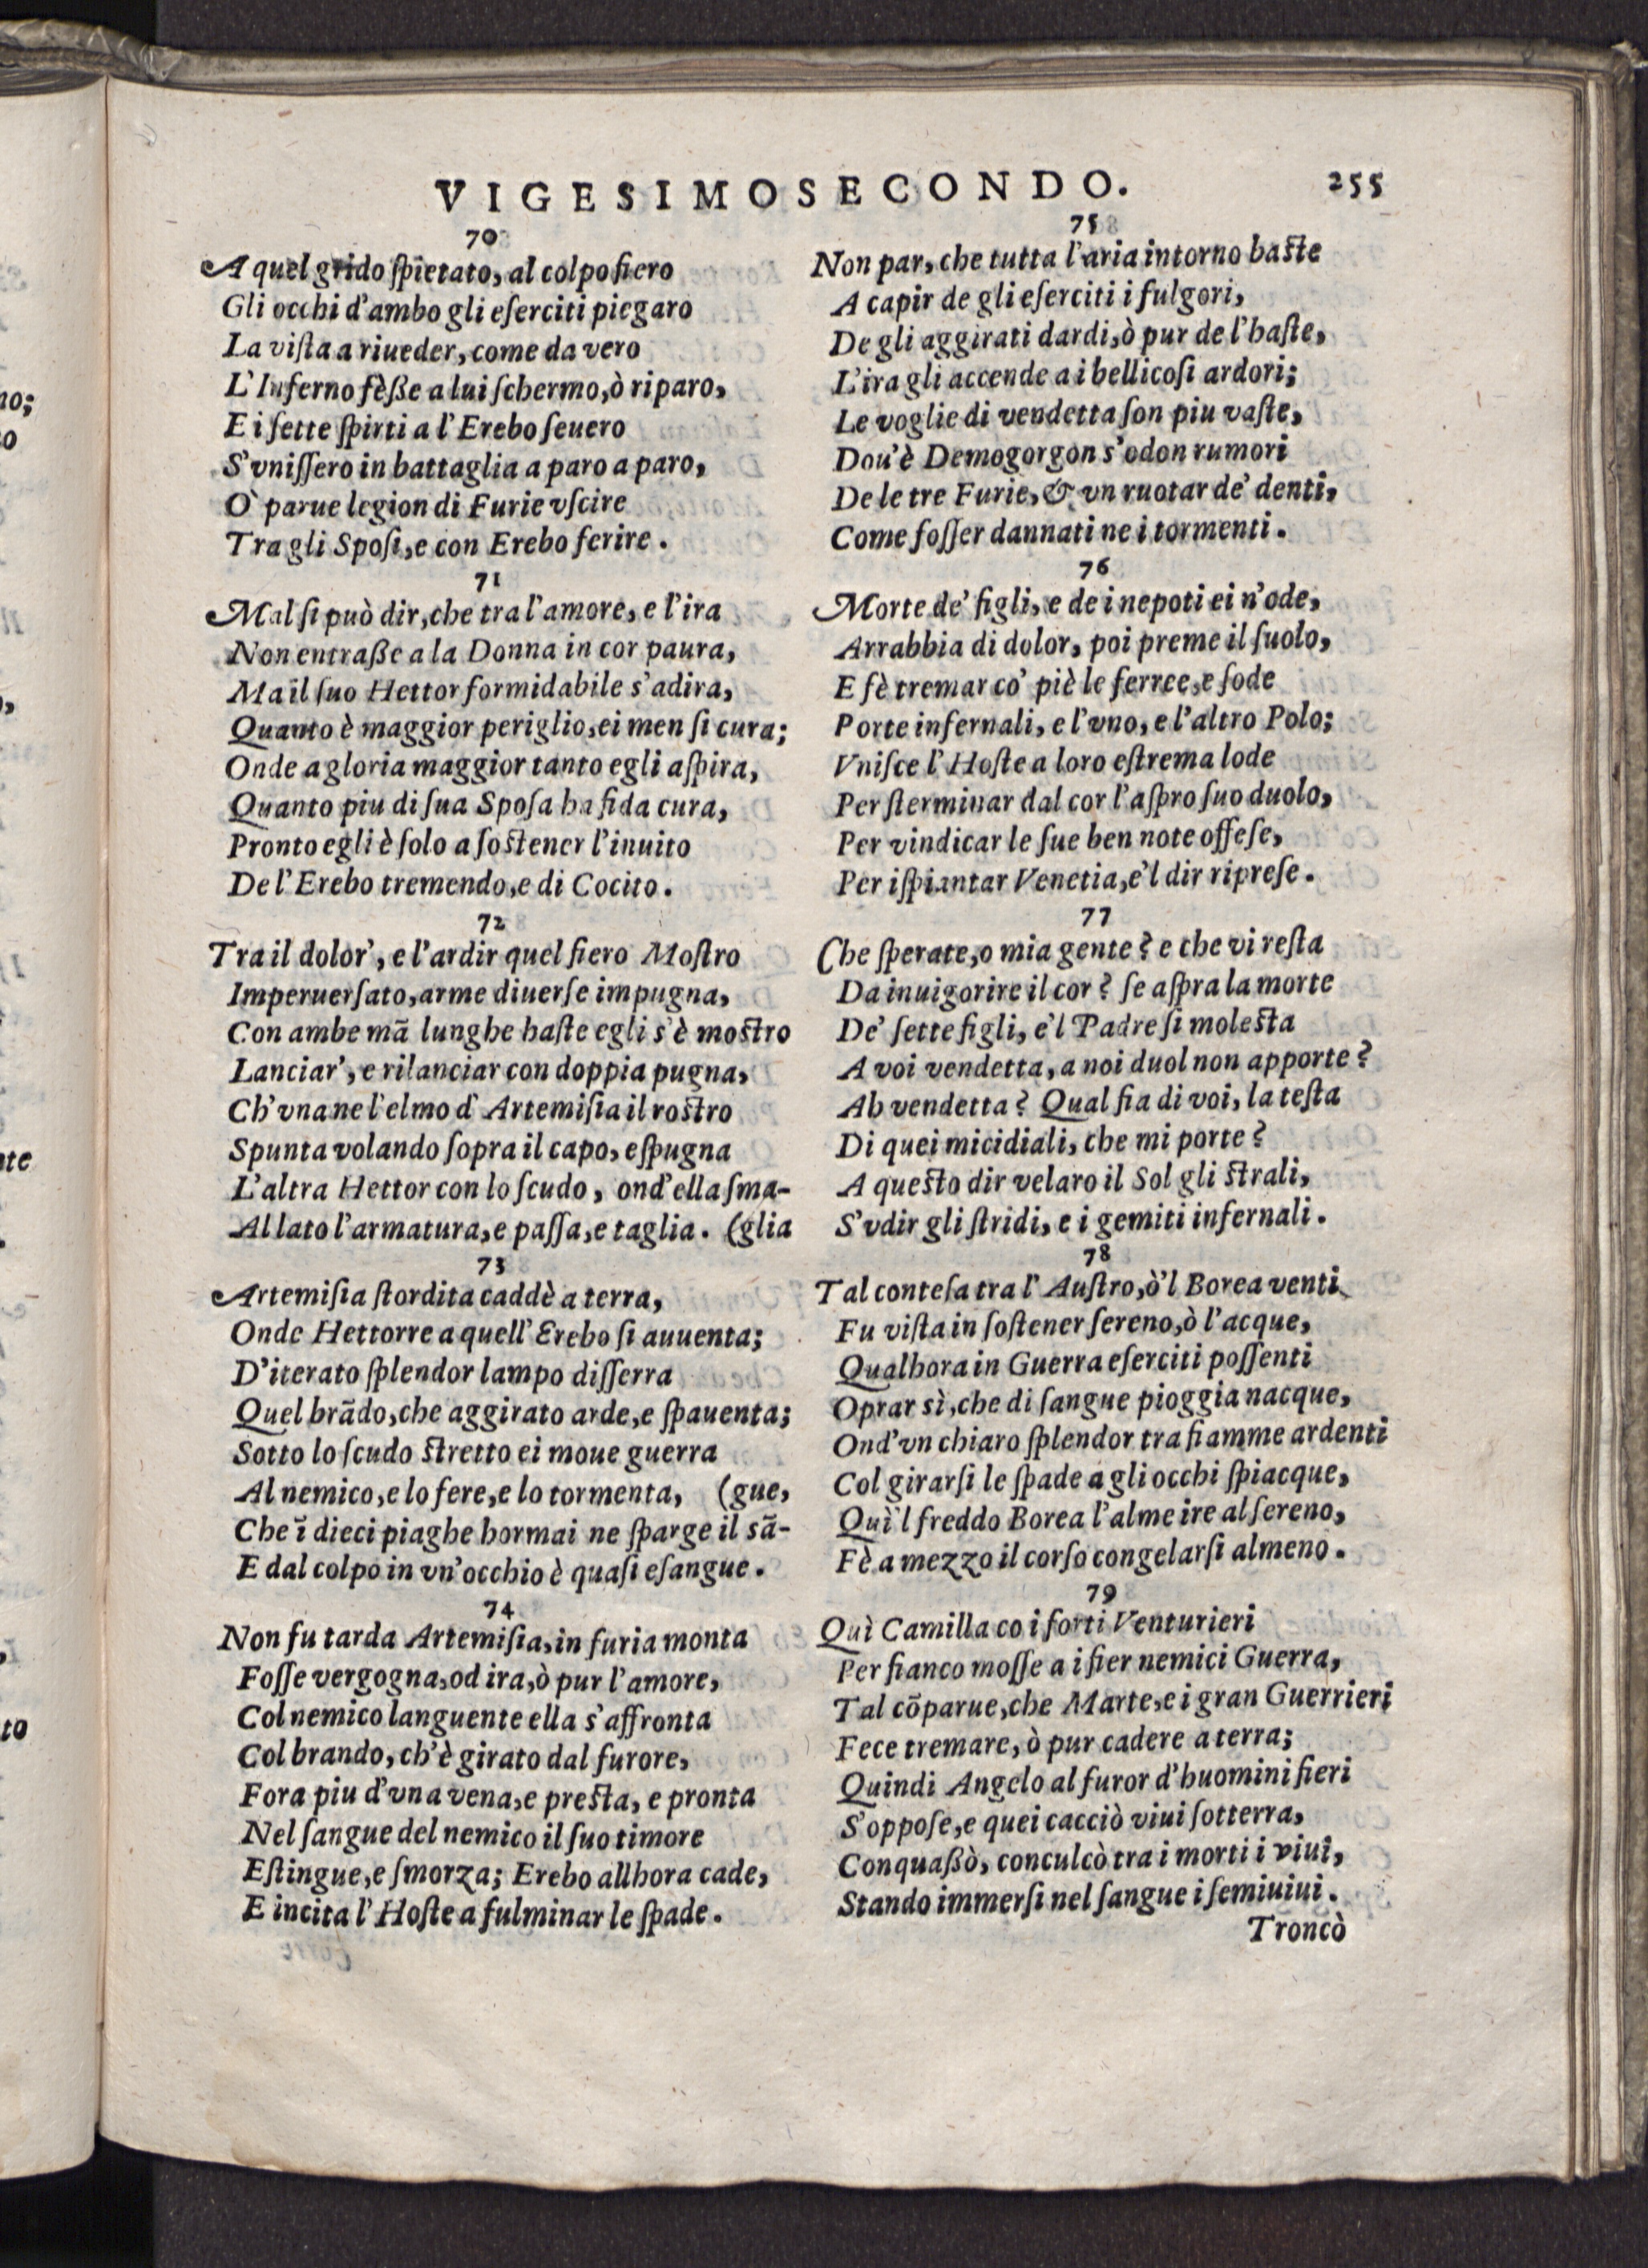 VIGESIMOSECONDO. 255
70
A quel grido ſpietato, al colpo fiero
Gli occhi d'ambo gli eſerciti piegaro
La viſta a riueder, come da vero
L'Inferno fèße a lui ſchermo, ò riparo,
E i ſette ſpirti a l'Erebo ſeuero
S'vniſſero in battaglia a paro a paro,
Ò parue legion di Furie vſcire
Tra gli Spoſi, e con Erebo ferire.
71
Mal ſi può dir, che tra l'amore, e l'ira
Non entraße a la Donna in cor paura,
Ma il ſuo Hettor formidabile s'adira,
Quanto è maggior periglio, ei men ſi cura;
Onde a gloria maggior tanto egli aſpira,
Quanto piu di ſua Spoſa ha fida cura,
Pronto egli è ſolo a ſostener l'inuito
De l'Erebo tremendo, e di Cocito.
72
Tra il dolor', e l'ardir quel fiero Moſtro
Imperuerſato, arme diuerſe impugna,
Con ambe mã lunghe haſte egli s'è mostro
Lanciar', e rilanciar con doppia pugna,
Ch'vna ne l'elmo d'Artemiſia il rostro
Spunta volando ſopra il capo, eſpugna
L'altra Hettor con lo ſcudo, ond'ella ſma-
Al lato l'armatura, e paſſa, e taglia. (glia
73
Artemiſia ſtordita caddè a terra,
Onde Hettorre a quell'Erebo ſi auuenta;
D'iterato ſplendor lampo diſſerra
Quel brãdo, che aggirato arde, e ſpauenta;
Sotto lo ſcudo stretto ei moue guerra
Al nemico, e lo fere, e lo tormenta, (gue,
Che ĩ dieci piaghe hormai ne ſparge il sã-
E dal colpo in vn'occhio è quaſi eſangue.
74
Non fu tarda Artemiſia, in furia monta
Foſſe vergogna, od ira, ò pur l'amore,
Col nemico languente ella s'affronta
Col brando, ch'è girato dal furore,
Fora piu d'vna vena, e presta, e pronta
Nel ſangue del nemico il ſuo timore
Eſtingue, e ſmorza; Erebo allhora cade,
E incita l'Hoſte a fulminar le ſpade.
75
Non par, che tutta l'aria intorno baste
A capir de gli eſerciti i fulgori,
De gli aggirati dardi, ò pur de l'haſte,
L'ira gli accende a i bellicoſi ardori;
Le voglie di vendetta ſon piu vaſte,
Dou'è Demogorgon s'odon rumori
De le tre Furie, & vn ruotar de' denti,
Come foſſer dannati ne i tormenti.
76
Morte de' figli, e de i nepoti ei n'ode,
Arrabbia di dolor, poi preme il ſuolo,
E fè tremar co' piè le ferree, e ſode
Porte infernali, e l'vno, e l'altro Polo;
Vniſce l'Hoſte a loro eſtrema lode
Per ſterminar dal cor l'aſpro ſuo duolo,
Per vindicar le ſue ben note offeſe,
Per iſpiantar Venetia, e'l dir ripreſe.
77
Che ſperate, o mia gente? e che vi reſta
Da inuigorire il cor? ſe aſpra la morte
De' ſette figli, e'l Padre ſi molesta
A voi vendetta, a noi duol non apporte?
Ah vendetta? Qual fia di voi, la teſta
Di quei micidiali, che mi porte?
A questo dir velaro il Sol gli strali,
S'vdir gli ſtridi, e i gemiti infernali.
78
Tal conteſa tra l'Auſtro, ò'l Borea venti
Fu viſta in ſoſtener ſereno, ò l'acque,
Qualhora in Guerra eſerciti poſſenti
Oprar sì, che di ſangue pioggia nacque,
Ond'vn chiaro ſplendor tra fiamme ardenti
Col girarſi le ſpade a gli occhi ſpiacque,
Quì'l freddo Borea l'alme ire al ſereno,
Fè a mezzo il corſo congelarſi almeno.
79
Quì Camilla co i forti Venturieri
Per fianco moſſe a i fier nemici Guerra,
Tal cõparue, che Marte, e i gran Guerrieri
Fece tremare, ò pur cadere a terra;
Quindi Angelo al furor d'huomini fieri
S'oppoſe, e quei cacciò viui ſotterra,
Conquaßò, conculcò tra i morti i viui,
Stando immerſi nel ſangue i ſemiuiui.
Troncò